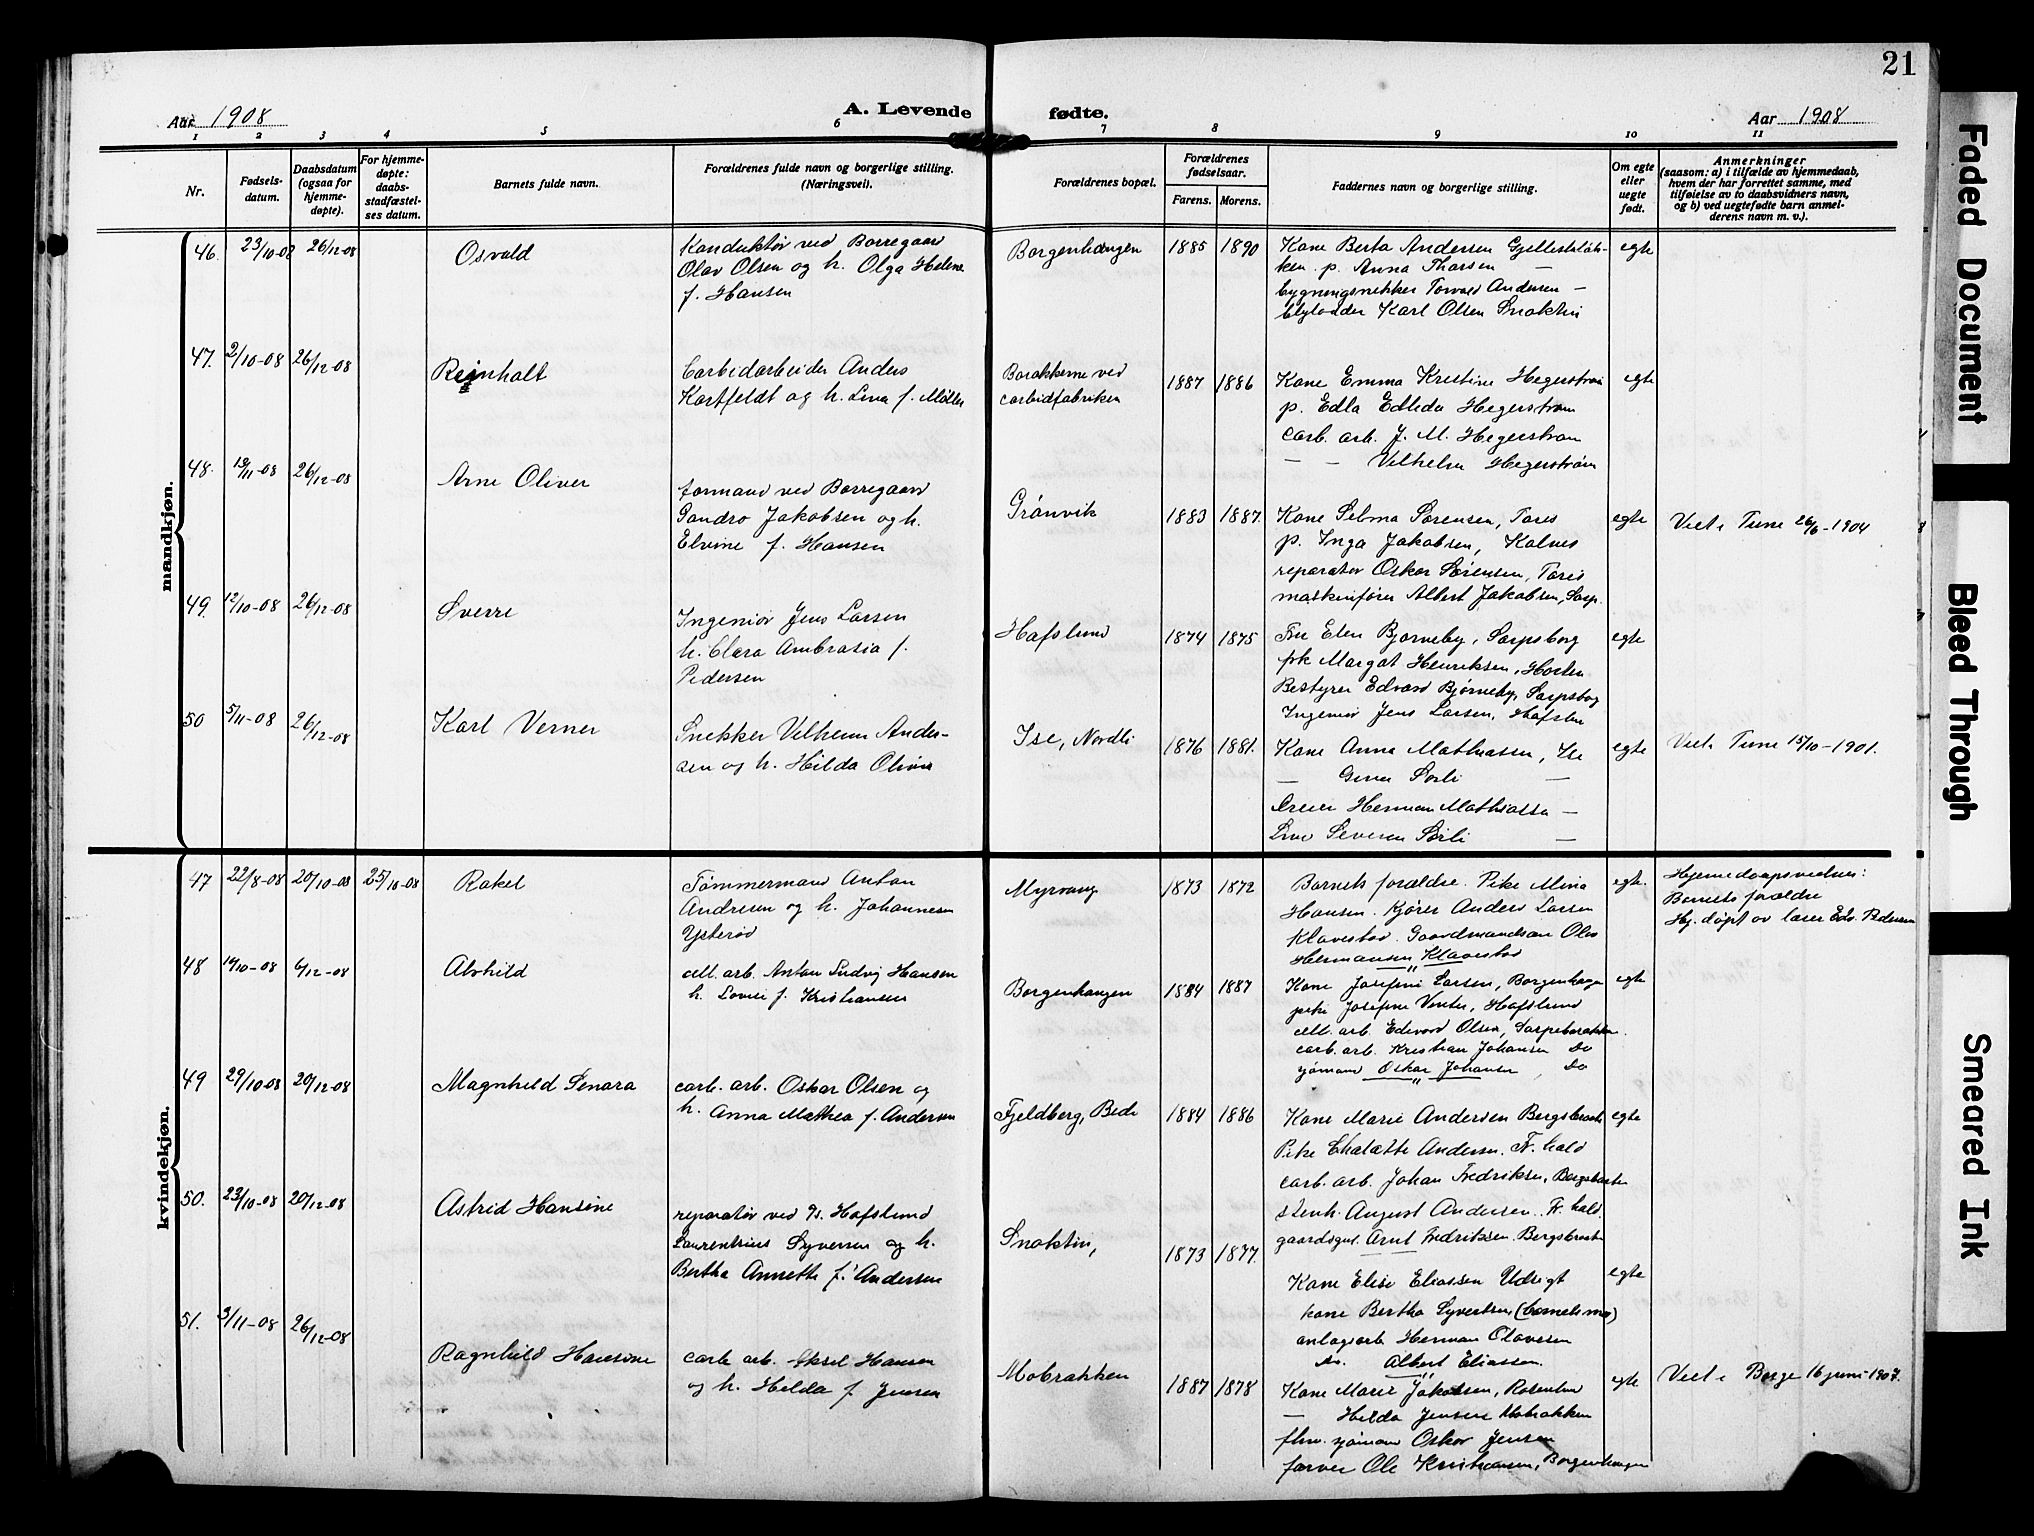 21
Aar 1908
A. Levende
fødte.
Aar 1908
1 2 3 4 5 6 7 8 9 10 11
Nr.
Fødsels-
datum.
Daabsdatum
(ogsaa for
hjemme-
døpte).
For hjemme-
døpte:
daabs-
stadfæstel-
ses datum.
Barnets fulde navn.
Forældrenes fulde navn og borgerlige stilling.
(Næringsvei).
Forældrenes bopæl.
Forældrenes
fødselsaar.
Farens. Morens.
Faddernes navn og borgerlige stilling.
Om egte
eller
uegte
født.
Anmerkninger
(saasom: a) i tilfælde av hjemmedaab,
hvem der har forrettet samme, med
tilføielse av to daabsvidners navn,
og b) ved uegtefødte barn anmel-
derens navn m. v.).
mandkjøn.
46. 23/10-08 26/12-08 Osvald
Konduktør ved Borregaard
Olav Olsen og h. Olga Helene
f. Hansen
Borgenhaugen 1885 1890
Kone Berta Andersen
p. Anna Thorsen —
bygningssnekker Torvald Andersen —
Karl Olsen Snoktin
egte
47. 2/10-08 26/12-08 Reinholt
Carbidarbeider Anders
Kortfeldt og h. Lina f. Møller
Barakkerne ved
carbidfabriken
1887 1886
Kone Emma Kristine Hegerstrøm
p. Edla Hegerstrøm
carb. arb. J. M. Hegerstrøm
— — Vilhelm Hegerstrøm
egte
48. 13/11-08 26/12-08 Arne Oliver
formand ved Borregaard
Jakobsen og h.
Elvine f. Hansen
Grønvik 1883 1887.
Kone Selma Sørensen, Tores
p. Inga Jakobsen, Kalnes
reparatør Oskar Sørensen, Tores
maskinfører Albert Jakobsen, Sarp.
egte
Viet i Tune 26/6-1904
49. 12/10-08 26/12-08 Sverre
Ingeniør Jens Larsen
h. Clara Ambrosia f.
Pedersen
Hafslund 1874 1875
Fru Elen Bjørneby, Sarpsborg
frk Margot Henriksen, Horten
Bestyrer Edvard Bjørneby, Sarpsborg
Ingeniør Jens Larsen, Hafslu
egte
50 5/11-08 26/12-08 Karl Verner
Snekker Vilhelm Ander-
sen og h. Hilda Olivia
Ise, Nordli 1876 1881.
Kone Anna Mathiassen, Ise
— Sørli —
Herman Mathiassen —
Severin Sørli —
egte
Viet i Tune 15/10-1901.
kvindekjøn.
47 22/8-08 20/10-08 25/10-08 Rakel
Tømmermand Anton
Andresen og h. Johannesen
Ysterød
Myrvang 1873 1872
Barnets forældre. Pike Mina
Hansen. Kjører Anders Larsen
Klavestad. Gaardmandsøn Olav
Hermansen Klavestad
egte.
Hjemmedaapsvidner:
Barnets forældre
Hj. døpt av lærer Edv. Pedersen
48 14/10-08 6/12-08 Alvhild
cell. arb. Anton Ludvig Hansen
h. Lovise f. Kristiansen
Borgenhaugen 1884 1887
Kone Josefine Larsen, Borgenhaugen
pike Josefine Venter, Hafslund
cell. arb. Edvard Olsen, Sarpebarakken.
carb. arb. Kristian Johansen Do
sjømand Oskar Johansen, Do
egte
49 29/10-08 20/12-08 Magnhild Senora
carb. arb. Oskar Olsen og
h. Anna Mathea f. Andersen
Fjeldberg, Bede 1884 1886
Kone Marie Andersen Bergsbraaten
Pike Chalotte Andersen. Fr. hald
carb. arb. Johan Fredriksen, Bergsbraaten
stenh. August Andersen. Fr. hald.
gaardsgut. Arnt Fredriksen. Bergsbraaten
egte
50. 23/10-08 20/12-08 Astrid Hansine
reparatør ved Hafslund
Laurentsius Syversen og h.
Bertha Annette f. Andersen
Snoktin, 1873 1877.
Kone Elise Eliassen Udsigt
kone Bertha Syvertsen (barnets mor)
anlægsarb Herman Olavesen
do. Albert Eliassen.
egte
51. 3/11-08 26/12-08 Ragnhild Hansine
carb. arb. Aksel Hansen
og h. Hilda f. Jensen
Mobrakken 1887 1878
Kone Marie Jakobsen, Rosenlund
— Hilda Jensen Mobrakken
fhv. sjømand Oskar Jensen
farver Ole Kristiansen, Borgenhaugen
egte
Viet i Borge 16 juni-1907.
Faded Document
Bleed Through
Smeared Ink